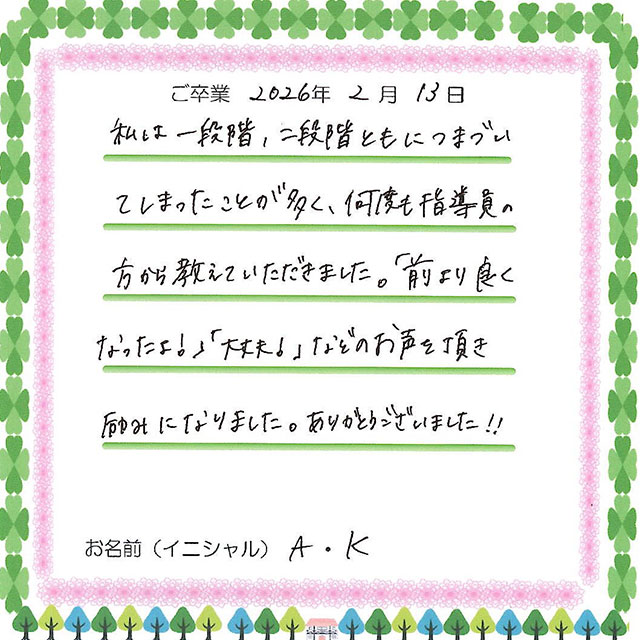 ご卒業 2026年 2月 13日
私は一段階,二段階ともにつまづい
てしまったことが多く、何度も指導員の
方から教えていただきました。「前より良く
なったよ!」「大丈夫!」などのお声を頂き
励みになりました。ありがとうございました!!
お名前（イニシャル） A・K